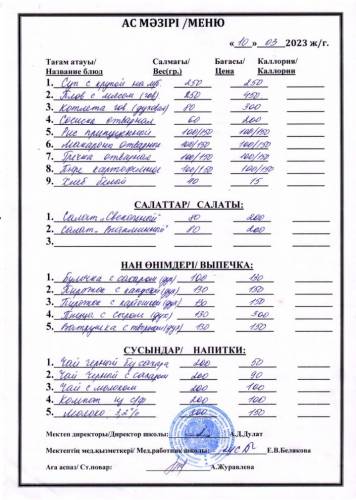 АС МӘЗІРІ /МЕНЮ
« 10 » 03 2023 ж/г.
Тағам атауы/ Салмағы/ Бағасы/ Каллория/
Название блюд Вес(гр.) Цена Каллории
1. Суп с крупой на мб. 250 250
2. Плов с мясом (гов) 250 450
3. Котлета гов (духовая) 80 300
4. Сосиска отварная 60 200
5. Рис припущенный 100/150 100/150
6. Макароны отварные 100/150 100/150
7. Гречка отварная 100/150 100/150
8. Пюре картофельное 100/150 100/150
9. Хлеб белый 40 15
САЛАТТАР/ САЛАТЫ:
1. Салат „Свекольный" 80 200
2. Салат „Витаминный" 80 200
3.
НАН ӨНІМДЕРІ/ ВЫПЕЧКА:
1. Булочка с сахаром (дух) 100 130
2. Пирожок с капустой (дух) 130 150
3. Пирожок с картошкой (дух) 130 150
4. Пицца с сыром (дух) 130 300
5. Ватрушка с творогом (дух) 130 150
СУСЫНДАР/ НАПИТКИ:
1. Чай черный без сахара 200 50
2. Чай черный с сахаром 200 90
3. Чай с молоком 200 100
4. Компот из с/ф 200 100
5. Молоко 3,2% 200 150
Мектеп директоры/Директор школы: А.Д.Дулат
Мектептің мед.қызметкері/ Мед.работник школы: Е.В.Белякова
Аға аспаз/ Ст.повар: А.Журавлева